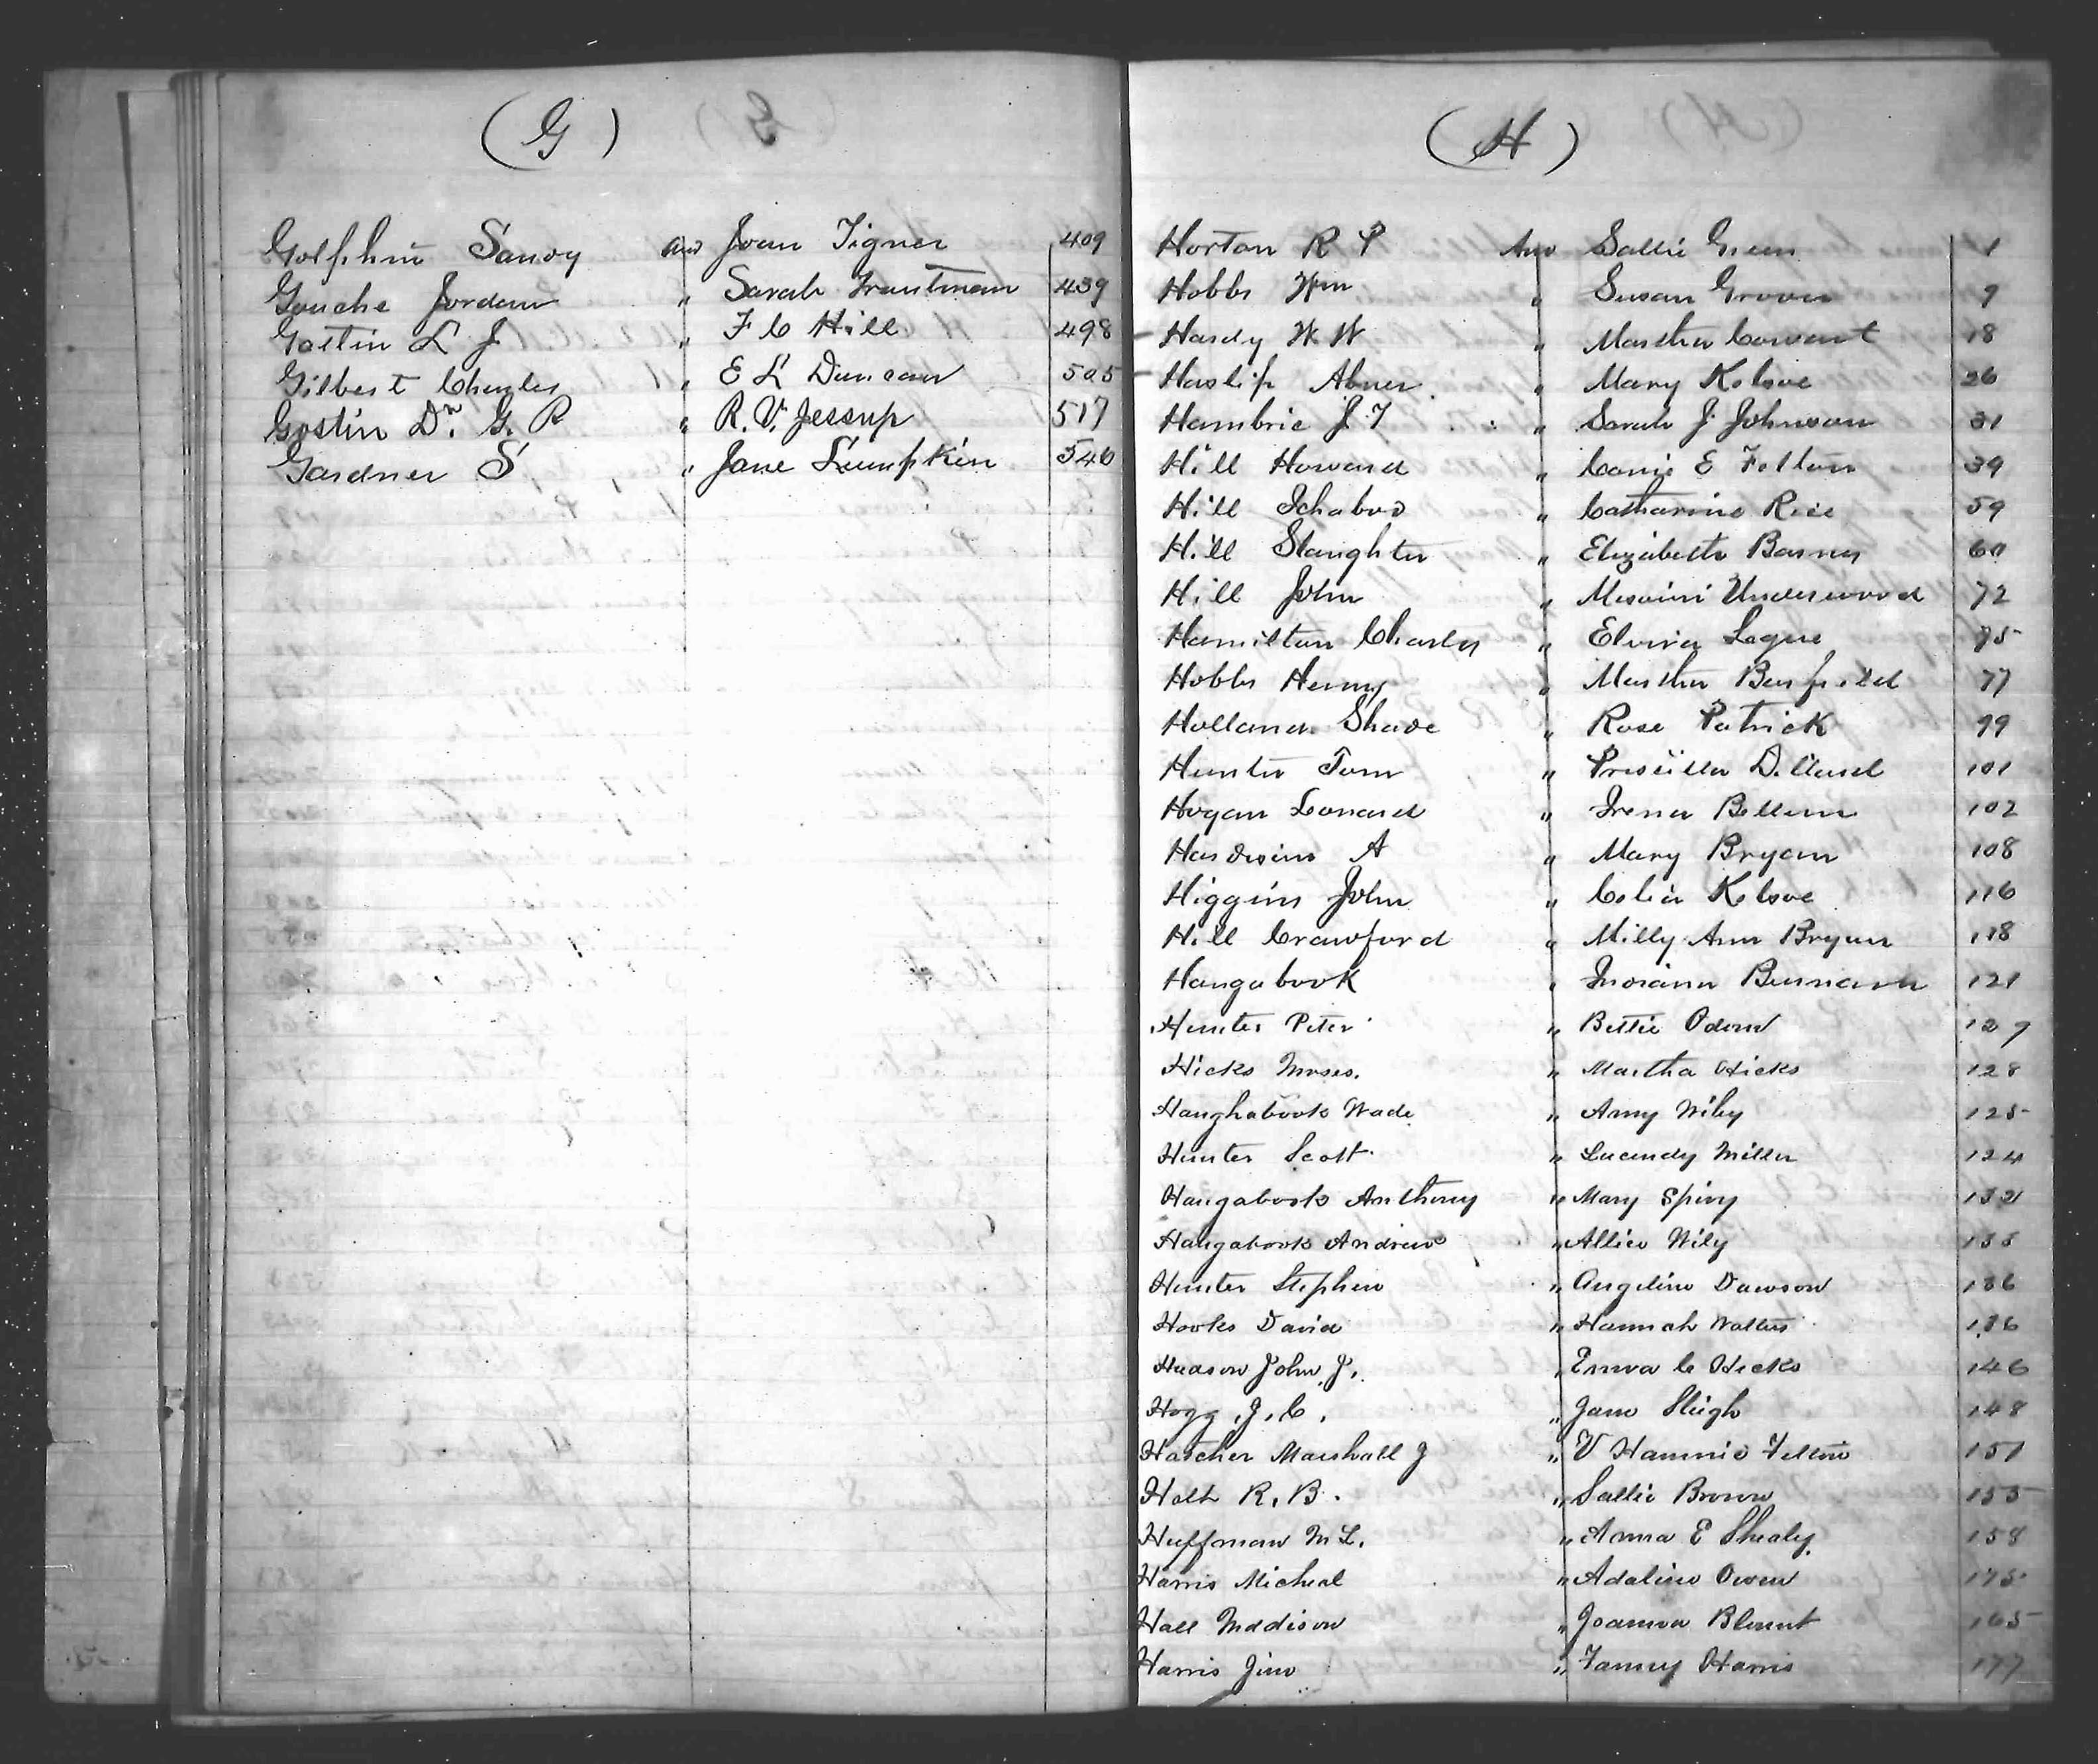 (G)
Golphin Sandy and Joan Tigner 409
Gouche Jordan " Sarah Trautman 439
Gostin L J " F C Hill 498
Gilbert Charles " E L Duncan 505
Gostin Dr. G. R " R. V. Jessup 517
Gardner S " Jane Lumpkin 540
(H)
Horton R P And Sallie Green 1
Hobbs Wm " Susan Groover 9
Hardy W W " Martha Cowart 18
Haslip Abner " Mary Kelsoe 26
Hambric J. T " Sarah J Johnson 31
Hill Howard " Conie E Felton 39
Hill Ichabod " Catharine Rice 59
Hill Slaughter " Elizabeth Barnes 60
Hill John " Missouri Underwood 72
Hamilton Charles " Elvira Segur 75
Hobbs Henry " Martha Barfield 77
Holland Shade " Rose Patrick 99
Hunter Tom " Priscilla Dillard 101
Hogan Leonard " Irena Bellum 102
Hardwin A " Mary Bryan 108
Higgins John " Celia Kelsoe 116
Hill Crawford " Milly Ann Bryan 118
Haugabook " Indiana 121
Hunter Peter " Bettie Odom 127
Hicks Moses. " Martha Hicks 128
Haughabook Wade " Amy Wiley 125
Hunter Scott " Lucindy Miller 124
Haugabook Anthony " Mary Spivy 132
Haugabook Andrew " Allice Wily 133
Hunter Stephen " Angeline Dawson 136
Hooks David " Hannah Walters 136
Hudson John J. " Emma C Hicks 146
Hogg J. C. " Jane Sleigh 148
Hatcher Marshall J " V Hammie Felton 151
Holt R. B. " Sallie Brown 155
Huffman M L. " Anna E Shealy 158
Harris Micheal " Adaline Owen 175
Hall Maddison " Joanna Blount 165
Harris Jim " Fanny Harris 177